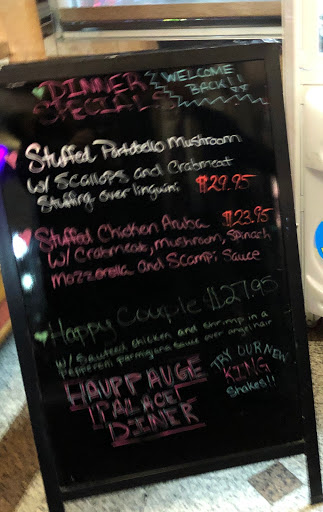 DINNER
SPECIALS
WELCOME
BACK!!
Stuffed Portobello Mushroom
W/ Scallops and Crabmeat
Stuffing over linguini $29.95
Stuffed Chicken Aruba $23.95
W/ Crabmeat, Mushroom, Spinach
Mozzorella and Scampi Sauce
Happy Couple $27.95
W/ Sauteed chicken and shrimp in a
parmigiana sauce over angelhair
HAUPPAUGE
PALACE
DINER
TRY OUR NEW
KING
shakes!!